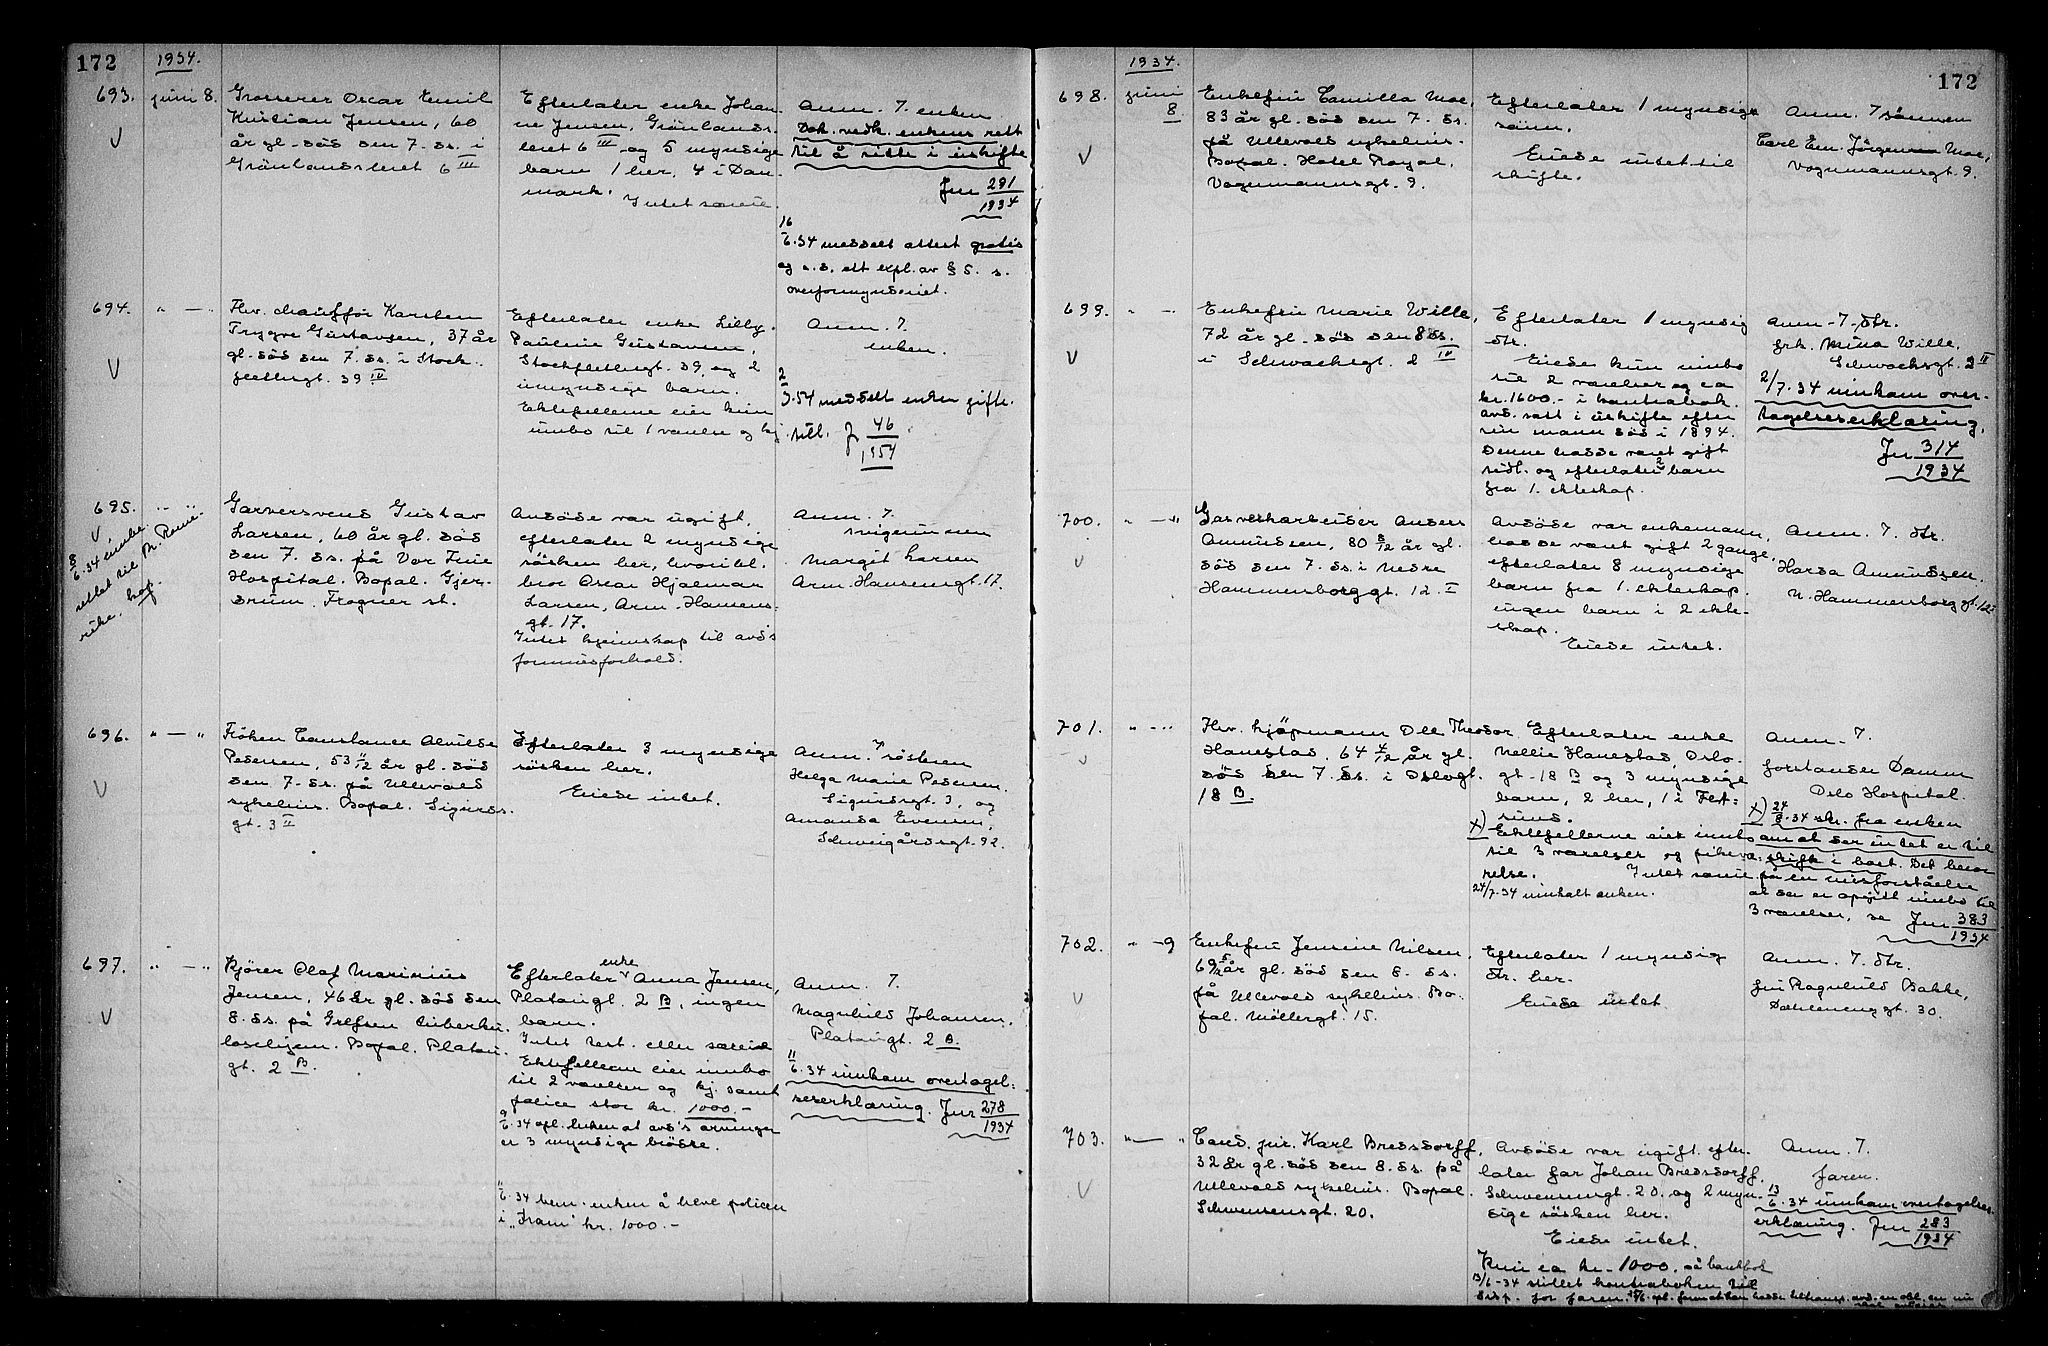 172
1934.
693. juni 8.
Grosserer Oscar Emil
Kristian Jensen, 60
år gl. död den 7. ds. i
Grönlandsleret 6 III
Efterlater enke Johan-
ne Jensen, Grönlands-
leret 6 III og 5 myndige
barn 1 her, 4 i Dan-
mark.
Intet særeie.
Anm. 7. enken
Dok. vedk. enkens rett
til å sitte i uskifte
Jnr 291
1934
16
6.34 meddelt attest gratis
og s. d. ett expl. av § 5. s.
overformynderiet.
694. " — "
Fhv. chauffør Karsten
Trygve Gustavsen, 37 år
gl. död den 7. ds. i Stock-
flethsgt. 39 IV
Efterlater enke Lilly
Pauline Gustavsen,
Stockflethsgt. 39, og 2
umyndige barn.
Ektefellerne eier kun
innbo til 1 værelse og kj.
Anm. 7.
enken.
2
3.54 meddelt enken gifte.
till. J 46
1954
695. " — "
V
8
6.34 innbe.
rettet til N. Rome-
rike. hop.
Garversvend Gustav
Larsen, 60 år gl. död
den 7. ds. på Vor Frue
Hospital. Bopal. Gjer-
drum. Frogner st.
Avdöde var ugift,
efterlater 2 myndige
søsken her, hvoribl.
bror Oscar Hjalmar
Larsen, Arm. Hansens-
gt. 17.
Intet kjennskap til avd's
formuesforhold.
Anm. 7.
svigerinnen
Margit Larsen
Arm. Hansensgt. 17.
696. " — "
Fröken Constance Alvilde
Pedersen, 53 11/12 år gl. död
den 7. ds. på Ullevål
sykehus. Bopal. Sigurds-
gt. 3 II
Efterlater 3 myndige
søsken her.
Eiede intet.
Anm. 7 søsteren
Helga Marie Pedersen
Sigurdsgt. 3, og
Amanda Evensen,
Schweigårdsgt. 92.
697. " — "
Kjører Olaf Marinius
Jensen, 46 år gl. död den
8. ds. på Grefsen tuberku-
losehjem. Bopal. Platou-
gt. 2 B.
Efterlater enke Anna Jensen,
Platougt. 2 B, ingen
barn.
Intet test. eller særeie
Ektefellene eier innbo
til 2 værelser og kj. samt
police stor kr. 1000.-
9
6.34 opl. enken at avd's arvinger
er 3 myndige brødre.
11
6.34 bem. enken å heve policen
i "Fram" kr. 1000.-
Anm. 7.
Magnhild Johansen.
Platougt. 2 B.
11
6.34 innkom overtagel-
seserklæring. Jnr 278
1934
172
1934.
698. juni
8
Enkefru Camilla Moe,
83 år gl. död den 7. ds.
på Ullevål sykehus.
Bopal. Hotel Royal,
Vognmannsgt. 9.
Efterlater 1 myndig
sönn.
Eiede intet til
skifte.
Anm. 7 sönnen
Carl Em. Jörgen Moe,
Vognmannsgt. 9.
699. " — "
Enkefru Marie Wille,
72 år gl. död den 8 ds.
i Schwachsgt. 2 IV
Efterlater 1 myndig
dtr.
Eiede kun innbo
til 2 værelser og ca
kr. 1600.- i bankbok.
avd. satt i uskifte efter
sin mann död i 1894.
Denne hadde vært gift
tidl. og efterlater 2 barn
fra 1. ekteskap.
Anm. 7. dtr.
frk. Mina Wille,
Schwachsgt. 2 IV
2/7.34 innkom over-
tagelseserklæring.
Jnr 314
1934
700. " — "
Gasverksarbeider Anders
Amundsen, 80 8/12 år gl.
död den 7. ds. i Nedre
Hammersborggt. 12. I
Avdöde var enkemann,
hadde vært gift 2 gange,
efterlater 8 myndige
barn fra 1. ekteskap.
ingen barn i 2 ekte-
skap.
Eiede intet.
Anm. 7. dtr.
Harda Amundsen
N. Hammersborg gt. 12 I
701. " — "
Fhv. kjöpmann Ole Theodor
Hanestad, 64 4/12 år gl.
död den 7. ds. i Oslogt.
18 B.
Efterlater enke
Nellie Hanestad, Oslo-
gt. 18 B og 3 myndige
barn, 2 her, 1 i Fet-
sund.
x) Ektefellerne eier innbo
til 3 værelser og pikevæ-
relse. Intet særeie.
24/7.34 innkalt enken.
Anm. 7.
forstander Damm
Oslo Hospital.
x) 24
8.34 skr. fra enken
om at der intet er til
skifte i boet. Det beror
på en misforståelse
at der er opgitt innbo til
3 værelser, se Jnr 383
1934
702. " — 9
Enkefru Jensine Nilsen,
69 5/12 år gl. död den 8. ds.
på Ullevål sykehus. Bo-
pal. Möllergt. 15.
Efterlater 1 myndig
dtr. her.
Eiede intet.
Anm. 7. dtr.
fru Ragnhild Bakke,
Dælenenggt. 30.
703. " — "
Cand. jur. Karl Bredsdorff,
32 år gl. död den 8. ds. på
Ullevål sykehus. Bopal.
Schwensensgt. 20.
Avdöde var ugift. efter-
later far Johan Bredsdorff,
Schwensensgt. 20. og 2 myn-
dige søsken her.
Eiede intet.
Kun ca kr. 1000. på bankbok
13/6-34 stillet kontraboken til
disp. for faren.
Anm. 7.
faren.
13
6.34 innkom overtagelses-
erklæring. Jnr 283
1934